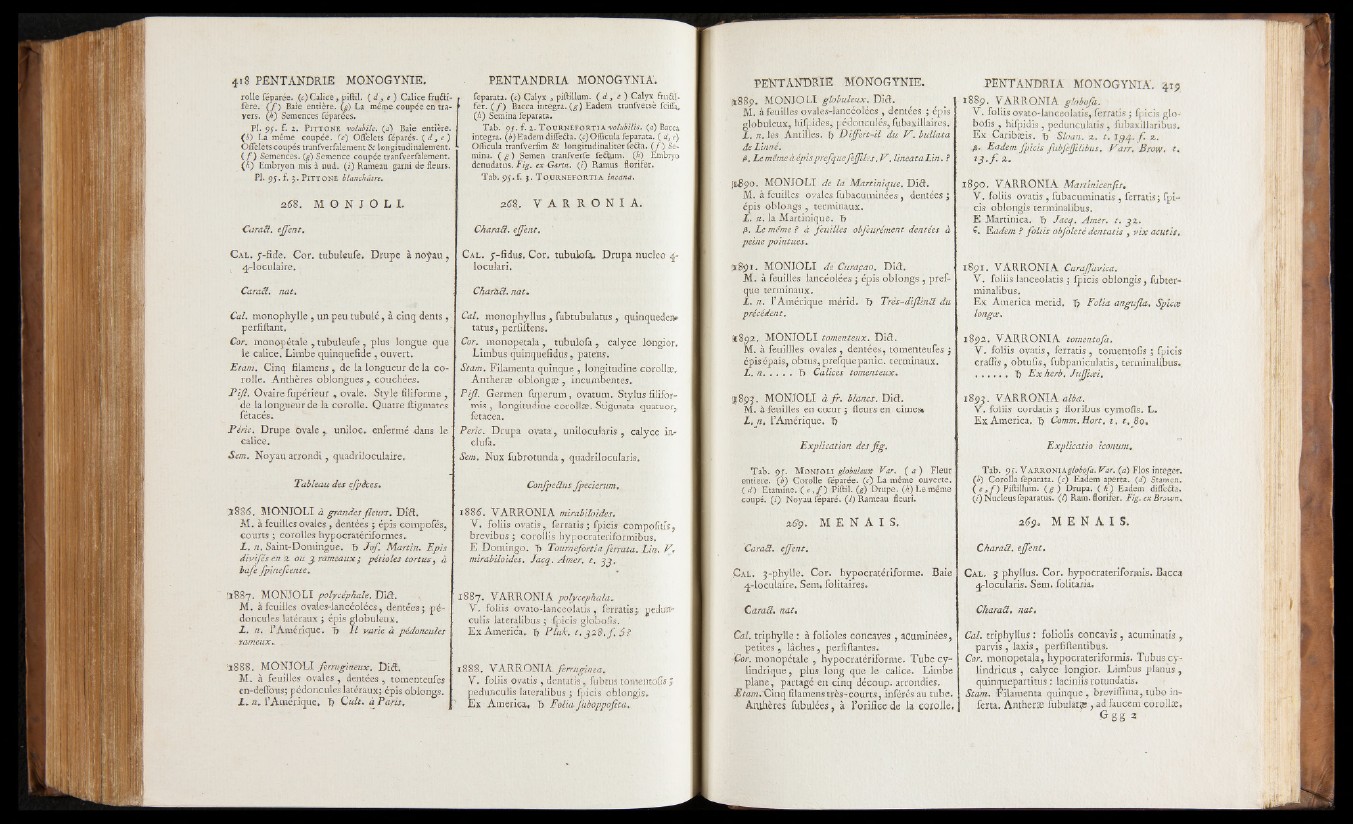 418 PENTANDRIE MONOGYNIE.
rolle ſéparée. (c) Calice, piſtil. ( d , e ) Calice fructi-
fère. (f) Baie entière. (g) La même coupée en tra-
vers. (h) Semences ſéparées.
Pl. 95. f. 2. PITTONE volubile. (a) Baie entière.
(b) La même coupée. (c) Oſſelets ſéparés. ( d , e )
Oſſelets coupés tranſverſalement & longitudinalement.
(f) Semences. (g) Semence coupée tranſverſalement.
(h) Embryon mis à nud. (i) Rameau garni de fleurs.
Pl. 95. f. 3. PITTONE blanchâtre.
268. MONJOLI.
Caract. eſſent.
CAL. 5-fide. Cor. tubuleuſe. Drupe à noyau ,
4-loculaire.
Caract. nat.
Cal. monophylle , un peu tubulé , à cinq dents ,
perſiſtant.
Cor. monopétale , tubuleuſe , plus longue que
le calice. Limbe quinquefide , ouvert.
Etam. Cinq filamens , de la longueur de la co-
rolle. Anthères oblongues , couchées.
Piſt. Ovaire ſupérieur , ovale. Style filiforme ,
de la longueur de la corolle. Quatre ſtigmates
ſétacés.
Péric. Drupe ovale , uniloc. enfermé dans le
calice.
Sem. Noyau arrondi , quadriloculaire.
Tableau des eſpèces.
1886. MONJOLI à grandes fleurs. Dict.
M. à feuilles ovales , dentées ; épis compoſés,
courts ; corolles hypocratériformes.
L. n. Saint-Domingue. ♄ Joſ. Martin. Epis
diviſés en 2 ou 3 rameaux ; pétioles tortus, à
baſe ſpineſcente.
1887. MONJOLI polycéphale. Dict.
M. à feuilles ovales-lancéolées, dentées ; pé-
doncules latéraux ; épis globuleux.
L. n. l'Amérique. ♄ Il varie à pédoncules
rameux.
1888. MONJOLI ferrugineux. Dict.
M. à feuilles ovales , dentées , tomenteuſes
en-deſſous; pédoncules latéraux; épis oblongs.
L. n. l'Amérique. ♄ Cult. à Paris.
PENTANDRIA MONOGYNIA.
ſeparata. (c) Calyx , piſtillum. ( d , e ) Calyx fructi-
fer. (f) Bacca integra. (g) Eadem tranſversè ſciſſa.
(h) Semina ſeparata.
Tab. 95. f. 2. TOURNEFORTIA volubilis. (a) Bacca
integra. (b) Eadem diſſecta. (c) Officula ſeparata. ( d, e )
Officula tranſverſim & longitudinaliter ſecta. (f) Se-
mina. (g) Semen tranſverſe ſectum. (h) Embryo
denudatus. Fig. ex Gærtn. (i) Ramus florifer.
Tab. 95. f. 3. TOURNEFORTIA incana.
268. VARRONIA.
Charact. eſſent.
CAL. 5-fidus. Cor. tubuloſa. Drupa nucleo 4-
loculari.
Charact. nat.
Cal. monophyllus , ſubtubulatus , quinqueden-
tatus , perſiſtens.
Cor. monopetala , tubuloſa , calyce longior.
Limbus quinquefidus , patens.
Stam. Filamenta quinque , longitudine corollæ.
Antheræ oblongæ , incumbentes.
Piſt. Germen ſuperum, ovatum. Stylus filifor-
mis , longitudine corollæ. Stigmata quatuor,
ſetacea.
Peric. Drupa ovata , unilocularis , calyce in-
cluſa.
Sem. Nux ſubrotunda , quadrilocularis.
Conſpectus ſpecierum.
1886. VARRONIA mirabiloides.
V. foliis ovatis, ſerratis ; ſpicis compoſitis,
brevibus ; corollis hypocrateriformibus.
E Domingo. ♄ Tournefortia ſerrata. Lin. V.
mirabiloides. Jacq. Amer. t. 33.
1887. VARRONIA polycephala.
V. foliis ovato-lanceolatis , ſerratis; pedun-
culis lateralibus ; ſpicis globoſis.
Ex America. ♄ Pluk. t. 328. f. 5?
1888. VARRONIA ferruginea.
V. foliis ovatis , dentatis , ſubtus tomentoſis ;
pedunculis lateralibus ; ſpicis oblongis.
Ex America. ♄ Folia ſuboppoſita.
PENTANDRIE MONOGYNIE.
1889. MONJOLI globuleux. Dict.
M. à feuilles ovales-lancéolées , dentées ; épis
globuleux, hiſpides, pédonculés, ſubaxillaires.
L. n. les Antilles. ♄ Differt-il du V. bullata
de Linné.
β. Le même à épis preſque ſeſſiles. V. lineata Lin. ?
1890. MONJOLI de la Martinique. Dict.
M. à feuilles ovales ſubacuminées , dentées ;
épis oblongs , terminaux.
L. n. la Martinique. ♄
β. Le même ? à feuilles obſcurément dentées à
peine pointues.
1891. MONJOLI de Curaçao. Dict.
M. à feuilles lancéolées ; épis oblongs , preſ-
que terminaux.
L. n. l'Amérique mérid. ♄ Très-diſtinct du
précédent.
1892. MONJOLI tomenteux. Dict.
M. à feuilles ovales , dentées, tomenteuſes ;
épis épais, obtus, preſque panic. terminaux.
L. n. . . . . ♄ Calices tomenteux.
1893. MONJOLI à fr. blancs. Dict.
M. à feuilles en cœur ; fleurs en cimes.
L. n. l'Amérique. ♄
Explication des fig.
Tab. 95. MONJOLI globuleux Var. ( a ) Fleur
entière. (b) Corolle ſéparée. (c) La même ouverte.
( d ) Etamine. ( e , f ) Piſtil. (g) Drupe. (h) Le même
coupé. (i) Noyau ſéparé. (l) Rameau fleuri.
269. MENAIS.
Caract. eſſent.
CAL. 3-phylle. Cor. hypocratériforme. Baie
4-loculaire. Sem. ſolitaires.
Caract. nat.
Cal. triphylle : à folioles concaves , acuminées,
petites , lâches , perſiſtantes.
Cor. monopétale , hypocratériforme. Tube cy-
lindrique , plus long que le calice. Limbe
plane , partagé en cinq découp. arrondies.
Etam. Cinq filamens très-courts, inſérés au tube.
Anthères ſubulées , à l'orifice de la corolle.
PENTANDRIA MONOGYNIA. 419
1889. VARRONIA globoſa.
V. foliis ovato-lanceolatis, ſerratis ; ſpicis glo-
boſis , hiſpidis , pedunculatis , ſubaxillaribus.
Ex Caribæis. ♄ Sloan. 2. t. 194. f. 2.
β. Eadem ſpicis ſubſeſſilibus. Varr. Brow. t.
13. f. 2.
1890. VARRONIA Martinicenſis.
V. foliis ovatis , ſubacuminatis , ſerratis; ſpi-
cis oblongis terminalibus.
E Martinica. ♄ Jacq. Amer. t. 32.
β. Eadem ? foliis obſoletè dentatis , vix acutis.
1891. VARRONIA Curaſſavica.
V. foliis lanceolatis ; ſpicis oblongis , ſubter-
minalibus.
Ex America merid. ♄ Folia anguſta. Spicæ
longæ.
1892. VARRONIA tomentoſa.
V. foliis ovatis, ſerratis , tomentoſis ; ſpicis
craſſis , obtuſis, ſubpaniculatis , terminalibus.
. . . . . . ♄ Ex herb. Juſſiæi.
1893. VARRONIA alba.
V. foliis cordatis ; floribus cymoſis. L.
Ex America. ♄ Comm. Hort. 1. t. 80.
Explicatio iconum.
Tab. 95. VARRONIA globoſa. Var. (a) Flos integer.
(b) Corolla ſeparata. (c) Eadem aperta. (d) Stamen.
( e , f ) Piſtillum. (g) Drupa. ( h ) Eadem diſſecta.
(i) Nucleus ſeparatus. (l) Ram. florifer. Fig. ex Brown.
269. MENAIS.
Charact. eſſent.
CAL. 3 phyllus. Cor. hypocrateriformis. Bacca
4-locularis. Sem. ſolitaria.
Charact. nat.
Cal. triphyllus : foliolis concavis , acuminatis ,
parvis , laxis , perſiſtentibus.
Cor. monopetala, hypocrateriformis. Tubus cy-
lindricus , calyce longior. Limbus planus ,
quinquepartitus : laciniis rotundatis.
Stam. Filamenta quinque , breviſſima, tubo in-
ſerta. Antheræ ſubulatæ , ad faucem corollæ.
Ggg 2